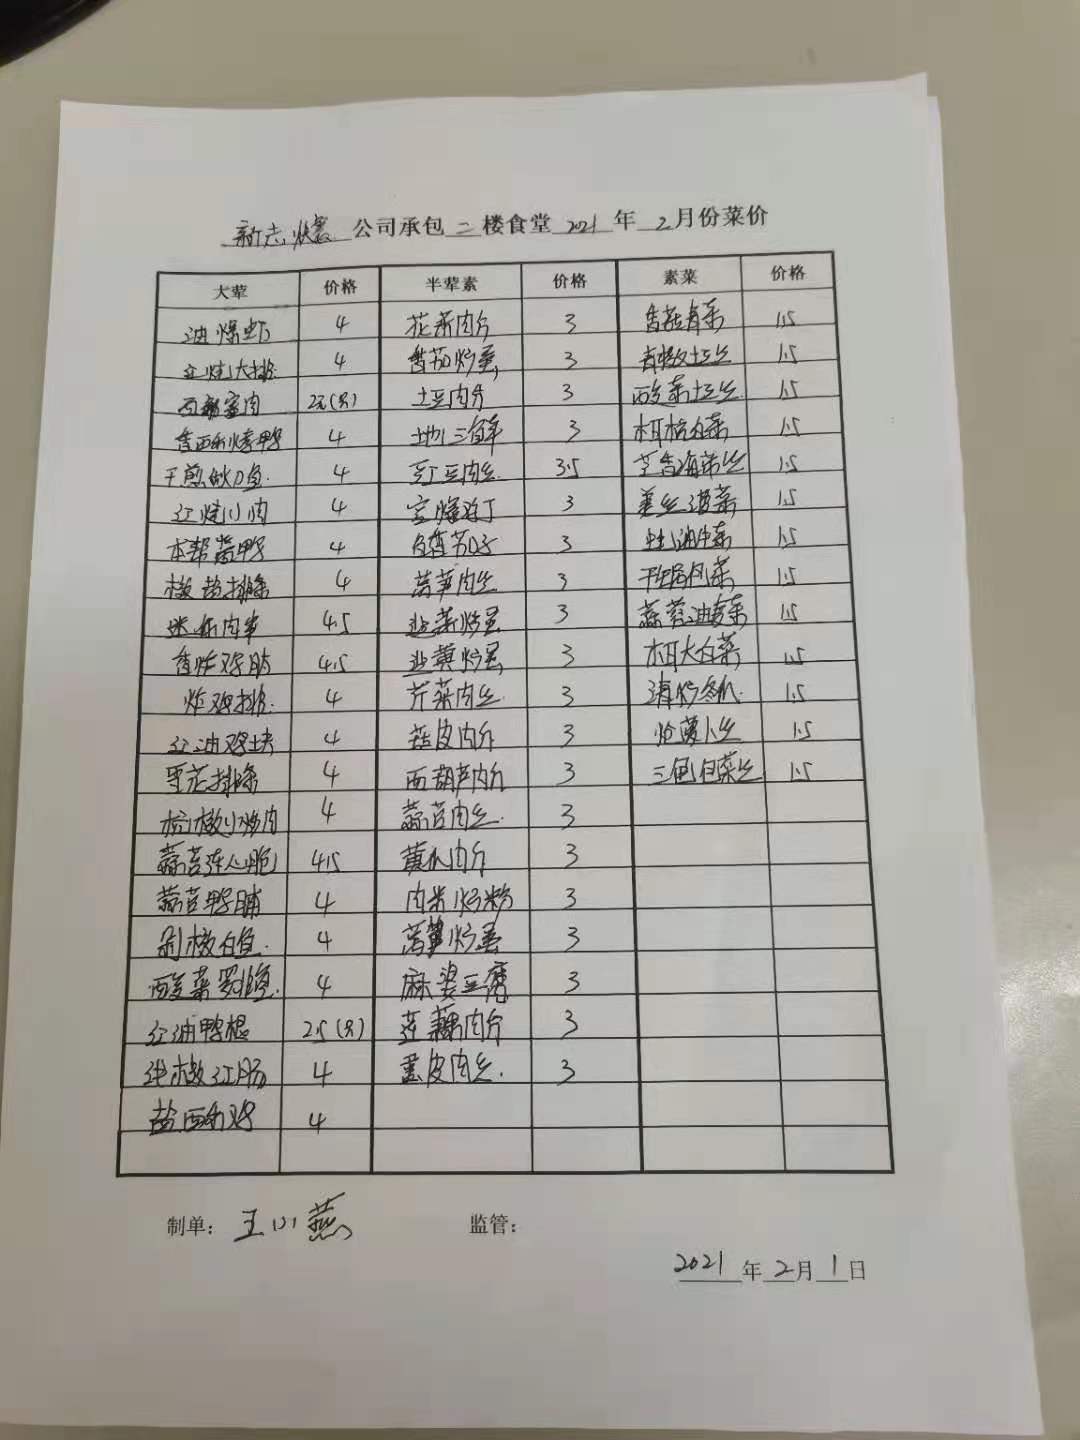 公司承包二楼食堂2021年2月份菜价
大荤 价格 半荤素 价格 素菜 价格
油爆虾 4 花菜肉片 3 香菇青菜 1.5
红烧大排 4 番茄炒蛋 3 青椒土豆丝 1.5
2元(只) 土豆肉片 3 酸菜土豆丝 1.5
香酥烤鸭 4 地三鲜 3 木耳杭白菜 1.5
干煎 鱼 4 豇豆肉丝 3.5 海带丝 1.5
红烧小肉 4 宫爆鸡丁 3 姜丝菠菜 1.5
本帮酱鸭 4 3 1.5
椒盐排条 4 莴笋肉丝 3 1.5
4.5 韭菜炒蛋 3 蒜蓉油麦菜 1.5
香炸鸡 4.5 韭黄炒蛋 3 木耳大白菜 1.5
炸鸡排 4 芹菜肉丝 3 清炒冬瓜 1.5
红油鸡块 4 茄皮肉片 3 炝萝卜丝 1.5
雪花排条 4 西葫芦肉片 3 三色白菜丝 1.5
杭椒小炒肉 4 蒜苔肉丝 3
4.5 黄瓜肉片 3
蒜苔鸭脯 4 肉米炒粉 3
剁椒白鱼 4 莴笋炒蛋 3
酸菜 鱼 4 麻婆豆腐 3
红油鸭根 2.5(只) 莲藕肉片 3
4 姜皮肉丝 3
盐西和鸡 4
制单: 王小燕 监管:
2021年2月1日